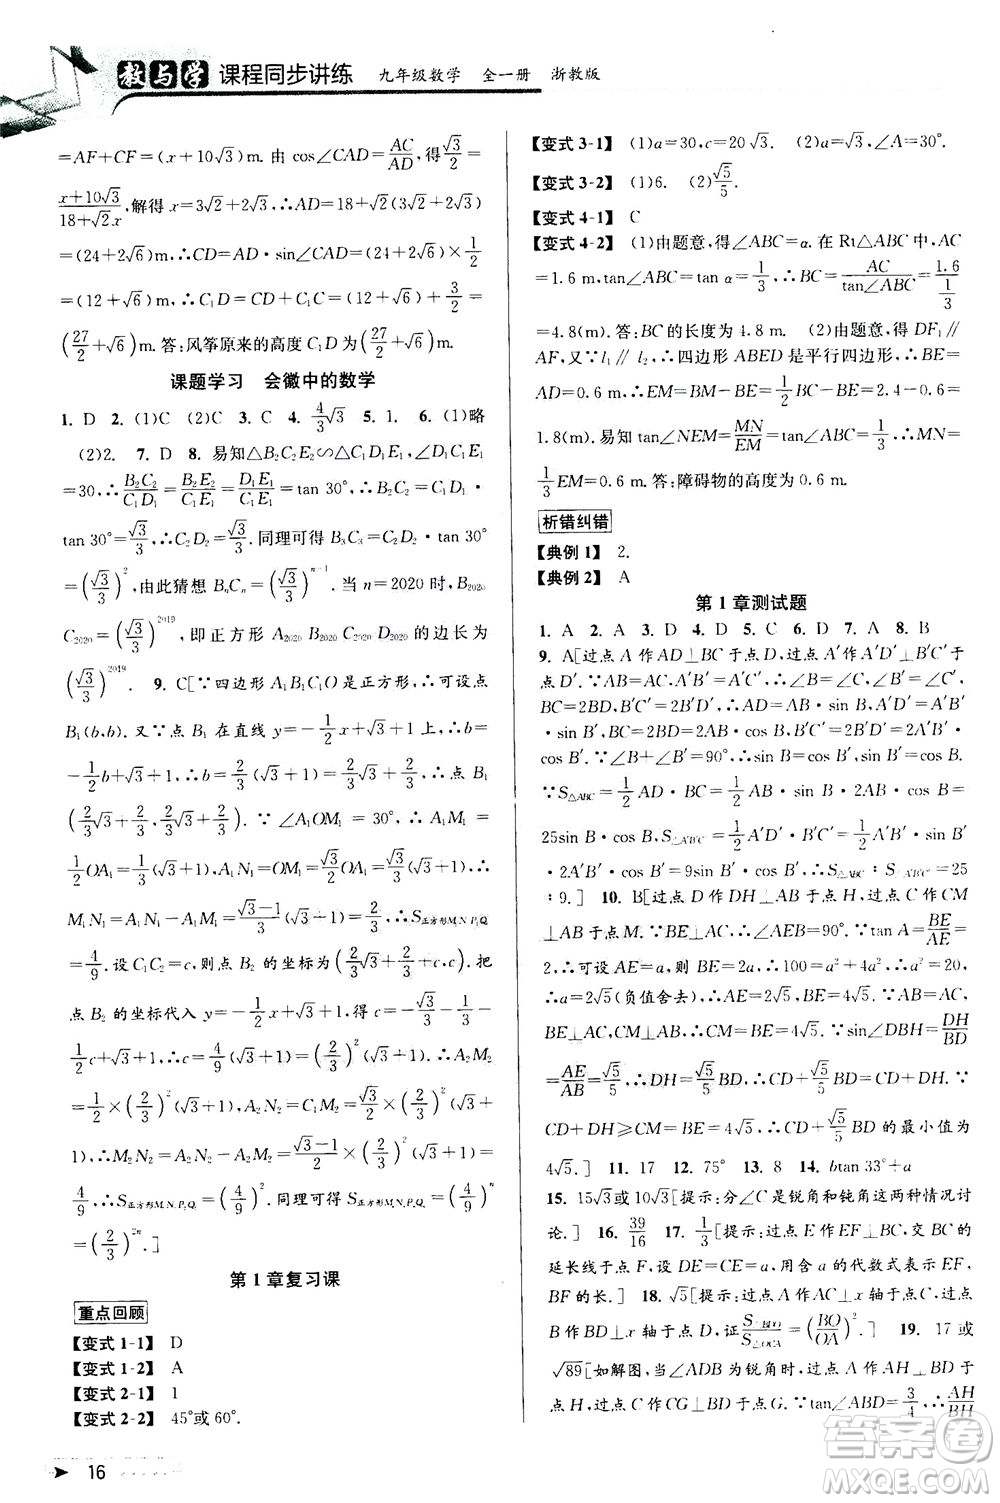 教与学 课程同步讲练 九年级数学 全一册 浙教版
=AF+CF=(x+10√3)m. 由 cos∠CAD=AC/AD,得√3/2=
(x+10√3)/(18+√2x),解得 x=3√2+2√3,∴AD=18+√2(3√2+2√3)
=(24+2√6)m,∴CD=AD·sin∠CAD=(24+2√6)×1/2
=(12+√6)m,∴C₁D=CD+C₁C=(12+√6)+3/2=
(27/2+√6)m. 答:风筝原来的高度 C₁D 为(27/2+√6)m.
课题学习 会徽中的数学
1. D 2. (1)C (2)C 3. C 4. 4/3√3 5. 1. 6. (1)略
(2)2. 7. D 8. 易知△B₂C₂E₂∽△C₁D₁E₁,∠C₁D₁E₁
=30,∴B₂C₂/C₁D₁=B₂E₂/C₁E₁=D₁E₁/C₁E₁=tan 30°,∴B₂C₂=C₁D₁·
tan 30°=√3/3,∴C₂D₂=√3/3. 同理可得 B₃C₃=C₂D₂·tan 30°
=(√3/3)²,由此猜想 BₙCₙ=(√3/3)ⁿ⁻¹. 当 n=2020时,B₂₀₂₀
C₂₀₂₀=(√3/3)²⁰¹⁹,即正方形 A₂₀₂₀B₂₀₂₀C₂₀₂₀D₂₀₂₀的边长为
(√3/3)²⁰¹⁹. 9. C[∵四边形 A₁B₁C₁O 是正方形,∴可设点
B₁(b,b). 又∵点 B₁ 在直线 y=-1/2x+√3+1上,∴b=
-1/2b+√3+1,∴b=2/3(√3+1)=2/3√3+2/3,∴点 B₁
(2/3√3+2/3,2/3√3+2/3). ∵∠A₁OM₁=30°,∴A₁M₁=
1/2OA₁=1/3(√3+1),A₁N₁=OM₁=√3/2OA₁=√3/3(√3+1),∴
M₁N₁=A₁N₁-A₁M₁=(√3-1)/3(√3+1)=2/3,∴S正方形M₁N₁P₁Q₁
=4/9. 设 C₁C₂=c,则点 B₂ 的坐标为(2/3√3+2/3+c,c). 把
点 B₂ 的坐标代入 y=-1/2x+√3+1,得c=-1/2(2/3√3+2/3
+c)+√3+1,∴c=4/9(√3+1)=(2/3)²(√3+1),∴A₂M₂=
1/2×(2/3)²(√3+1),A₂N₂=C₁M₂=√3/2×(2/3)²(√3+
1),∴M₂N₂=A₂N₂-A₂M₂=(√3-1)/2(√3+1)×(2/3)²=
4/9,∴S正方形M₂N₂P₂Q₂=(4/9)². 同理可得 S正方形MₙNₙPₙQₙ=(4/9)ⁿ
=(2/3)²ⁿ.]
第 1 章复习课
重点回顾
【变式 1-1】 D
【变式 1-2】 A
【变式 2-1】 1
【变式 2-2】 45°或 60°.
16
【变式 3-1】 (1)a=30,c=20√3. (2)a=√3,∠A=30°.
【变式 3-2】 (1)6. (2)√5/5.
【变式 4-1】 C
【变式 4-2】 (1)由题意,得∠ABC=α. 在 Rt△ABC 中,AC
=1.6 m,tan∠ABC=tan α=1/3,∴BC=AC/tan∠ABC=1.6/(1/3)=
4.8(m). 答:BC 的长度为 4.8 m. (2)由题意,得 DF₁∥
AF,又∵l₁∥l₂,∴四边形 ABED 是平行四边形,∴BE=
AD=0.6 m,∴EM=BM-BE=1/2BC-BE=2.4-0.6=
1.8(m). 易知 tan∠NEM=MN/EM=tan∠ABC=1/3,∴MN=
1/3EM=0.6 m. 答:障碍物的高度为 0.6 m.
析错纠错
【典例 1】 2.
【典例 2】 A
第 1 章测试题
1. A 2. A 3. D 4. A 5. C 6. A 7. A 8. B
9. A[过点 A 作 AD⊥BC 于点 D,过点 A′作 A′D′⊥B′C′于
点 D′. ∵AB=AC=5,A′B′=A′C′=3,∴∠B=∠C,∠B′=∠C′,
BC=2BD,B′C′=2B′D′,∴AD=AB·sin B,A′D′=A′B′
·sin B′,BC=2BD=2AB·cos B,B′C′=2B′D′=2A′B′·
cos B′. ∵∠B+∠B′=90°,∴sin B=cos B′,sin B′=cos B.
∵S△ABC=1/2AD·BC=1/2AB·sin B·2AB·cos B=
25sin B·cos B,S△A′B′C′=1/2A′D′·B′C′=1/2A′B′·sin
B′·2A′B′·cos B′=9sin B′·cos B′,∴S△ABC:S△A′B′C′=25
:9.] 10. B[过点 D 作 DH⊥AB 于点 H,过点 C 作 CM
⊥AB 于点 M. ∵BE⊥AC,∴∠AEB=90°. ∵tan A=BE/AE=
2,∴可设 AE=a,则 BE=2a,∴100=a²+4a²,∴a²=20,
∴a=2√5(负值舍去),∴AE=2√5,BE=4√5. ∵AB=AC,
BE⊥AC,CM⊥AB,∴CM=BE=4√5. ∵sin∠DBH=DH/BD
=AE/AB=√5/5,∴DH=√5/5BD,∴CD+√5/5BD=CD+DH. ∵
CD+DH≥CM=BE=4√5,∴CD+√5/5BD 的最小值为
4√5.] 11. 17 12. 75° 13. 8 14. btan 33°+a
15. 15√3或 10√3[提示:分∠C 是锐角和钝角这两种情况讨
论.] 16. 39/16 17. 1/3[提示:过点 E 作 EF⊥BC,交 BC 的
延长线于点 F,设 DE=CE=a,用含 a 的代数式表示 EF,
BF 的长.] 18. √5[提示:过点 A 作 AC⊥x 轴于点 C,过点
B 作 BD⊥x 轴于点 D,证S△BDO/S△OCA=(BO/OA)².] 19. 17 或
√89[如解图,当∠ADB 为锐角时,过点 A 作 AH⊥BD 于
点 H. ∵CF∥BD,∴∠ABD=α,∴tan∠ABD=3/4,∴AH/BH=
答案圈
MXQE.COM